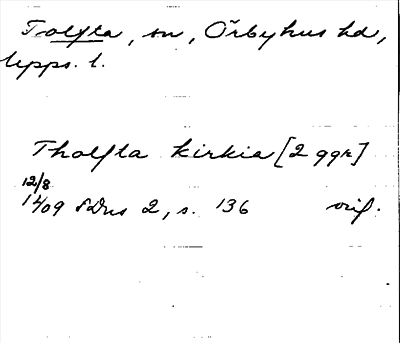 Tolfta, sn, Örbyhus hd,
Upps. l.
Tholfta kirkia [2 ggr]
12/8
1409 SDns 2, s. 136 orig.